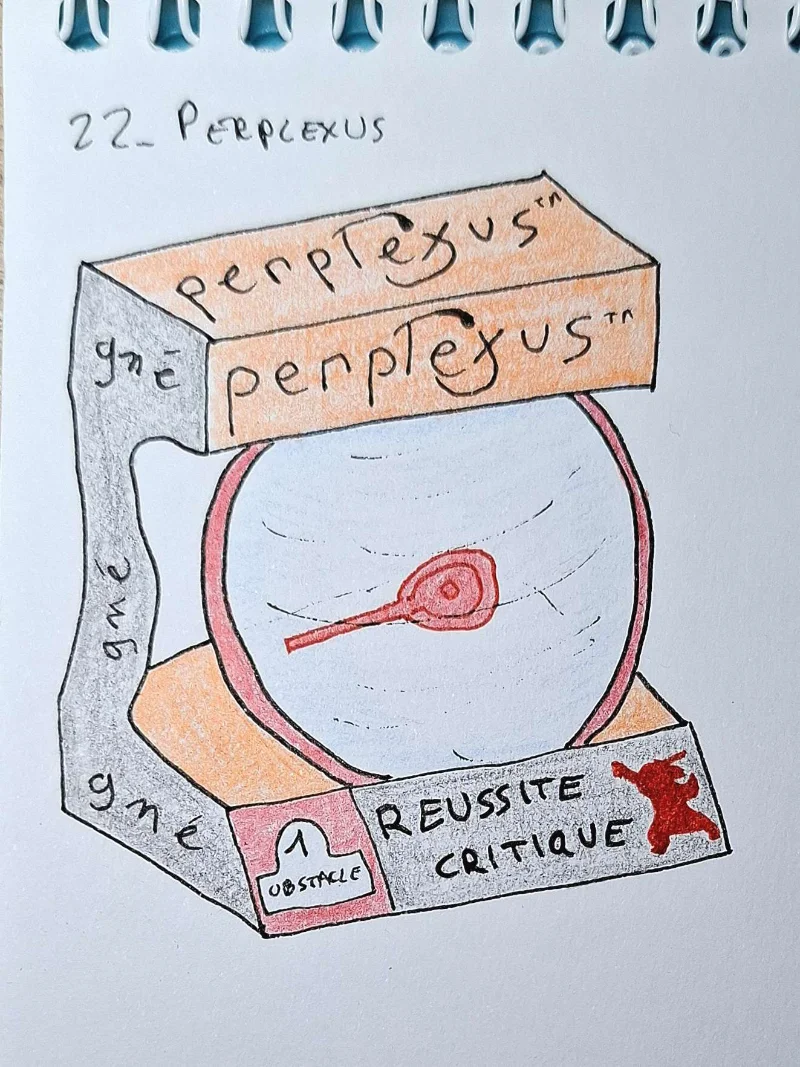 22_ PERPLEXUS
perplexus™
perplexus™
gné
gné
gné
1
OBSTACLE
REUSSITE
CRITIQUE